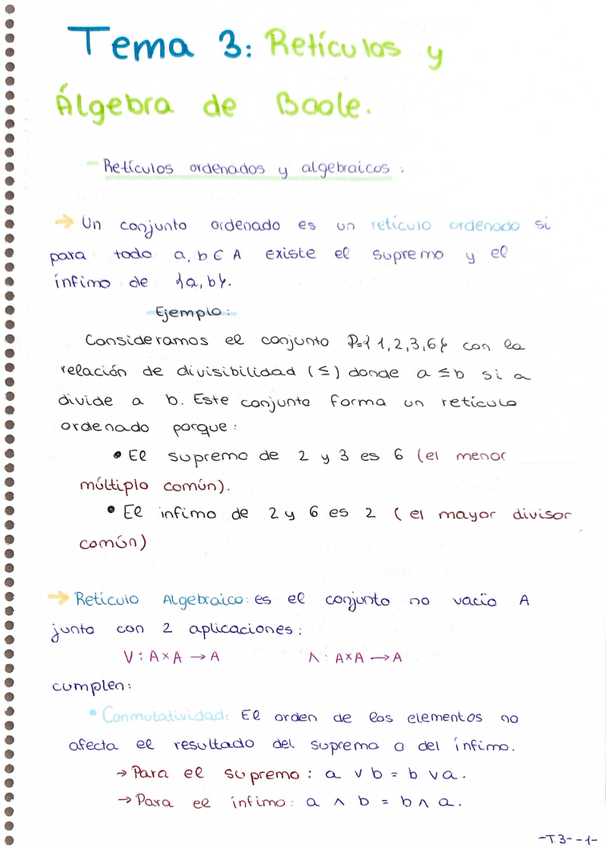 Tema 3: Retículos y
Álgebra de Boole.
- Retículos ordenados y algebraicos:
→ Un conjunto ordenado es un retículo ordenado si
para todo a, b ∈ A existe el supremo y el
ínfimo de {a, b}.
Ejemplo:
Consideramos el conjunto P={1,2,3,6} con la
relación de divisibilidad (≤) donde a ≤ b si a
divide a b. Este conjunto forma un retículo
ordenado porque:
• El supremo de 2 y 3 es 6 (el menor
múltiplo común).
• El infimo de 2 y 6 es 2 (el mayor divisor
común)
→ Retículo Algebraico: es el conjunto no vacío A
junto con 2 aplicaciones:
V: A×A → A Λ: A×A → A
cumplen:
• Conmutatividad: El orden de los elementos no
afecta el resultado del supremo o del ínfimo.
→ Para el supremo: a ∨ b = b ∨ a.
→ Para el ínfimo: a ∧ b = b ∧ a.
-T.3--1-